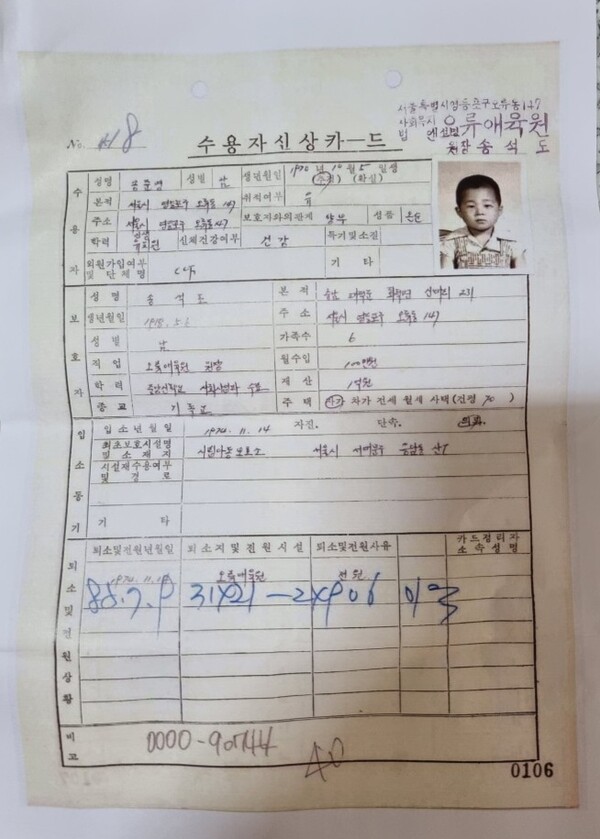 서울특별시영등포구오류동147
No. 118
수용자신상카ー드
사회복지
법인
오류애육원
원장 송석도
수용자
성명
성별 남
생년월일 1970년 10월 5일생
(추정) (확실)
본적 서울시 영등포구 오류동 147
취적여부 유
주소 서울시 영등포구 오류동 147
보호자와의관계 양부
성품 온순
학력
신체건강여부 건강
특기및소질
회원가입여부
및단체명
기타
보호자
성명 송석도
본적
생년월일 1918.5.6
주소 서울시 영등포구 오류동 147
성별 남
가족수 6
직업 오류애육원 원장
월수입
학력
재산 1억원
종교 기독교
주택 자가 차가 전세 월세 사택 (건평 70)
입소동기
입소년월일 1974.11.14 자진. 단속. 의뢰.
최초보호시설명
및소재지
시립아동보호소 서울시 서대문구 응암동 산7
시설재수용여부
및경로
기타
퇴소및전원상황
퇴소및전원년월일
퇴소지및전원시설
퇴소및전원사유
카드정리자
소속성명
오류애육원 전원
88.7.9 31421-24906
비고
0000-90744
40
0106